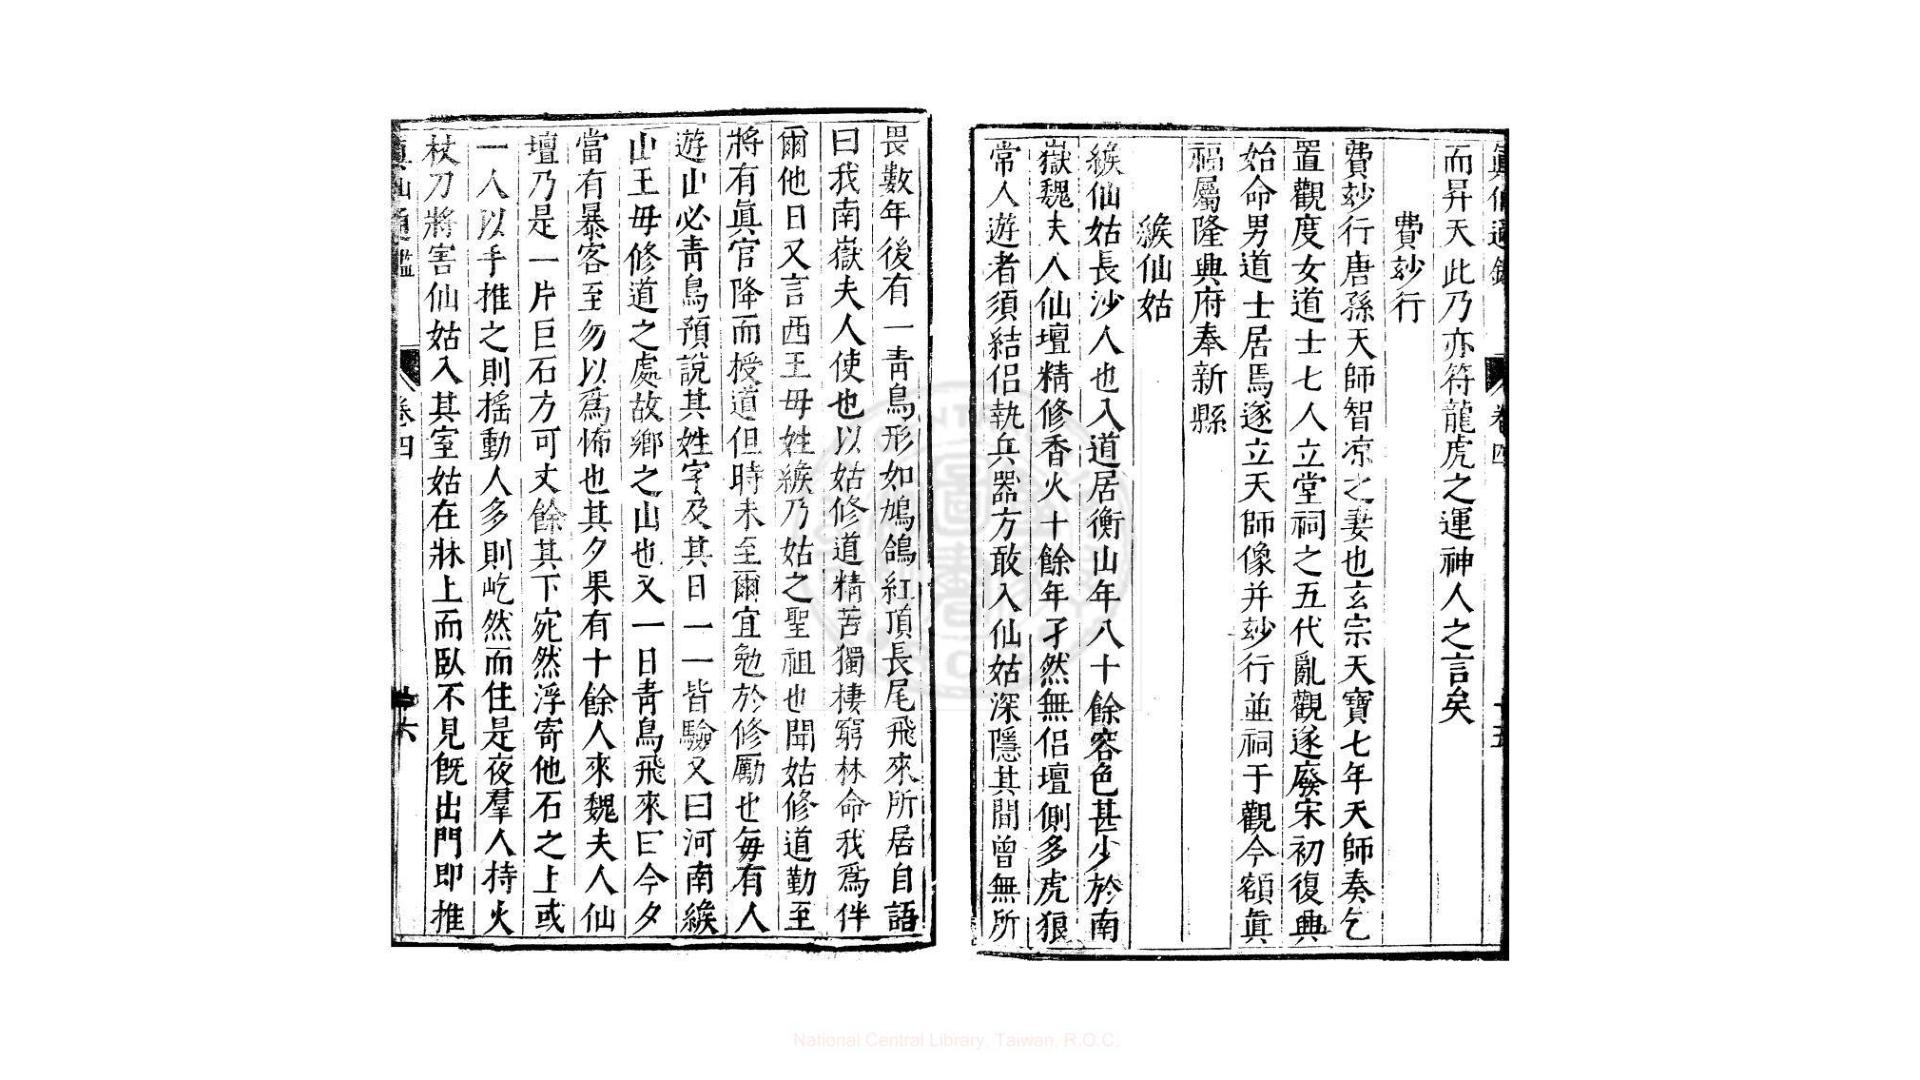 眞仙通鑑 卷四 十五
而昇天此乃亦符龍虎之運神人之言矣
費玅行
費玅行唐孫天師智凉之妻也玄宗天寶七年天師奏乞
置觀度女道士七人立堂祠之五代亂觀遂廢宋初復興
始命男道士居焉遂立天師像并玅行並祠于觀今額眞
福屬隆興府奉新縣
緱仙姑
緱仙姑長沙人也入道居衡山年八十餘容色甚少於南
嶽魏夫人仙壇精修香火十餘年孑然無侶壇側多虎狼
常人遊者須結侶執兵器方敢入仙姑深隱其間曾無所
畏數年後有一青鳥形如鳩鴿紅頂長尾飛來所居自語
曰我南嶽夫人使也以姑修道精苦獨棲窮林命我爲伴
爾他日又言西王毋姓緱乃姑之聖祖也聞姑修道勤至
將有眞官降而授道但時未至爾宜勉於修厲也每有人
遊山必青鳥預說其姓字及其日一一皆驗又曰河南緱
山王毋修道之處故鄉之山也又一日青鳥飛來曰今夕
當有暴客至勿以爲怖也其夕果有十餘人來魏夫人仙
壇乃是一片巨石方可丈餘其下宛然浮寄他石之上或
一人以手推之則揺動人多則屹然而住是夜羣人持火
杖刀將害仙姑入其室姑在牀上而臥不見旣出門即推
眞仙通鑑 卷四 十六
National Central Library, Taiwan, R.O.C.